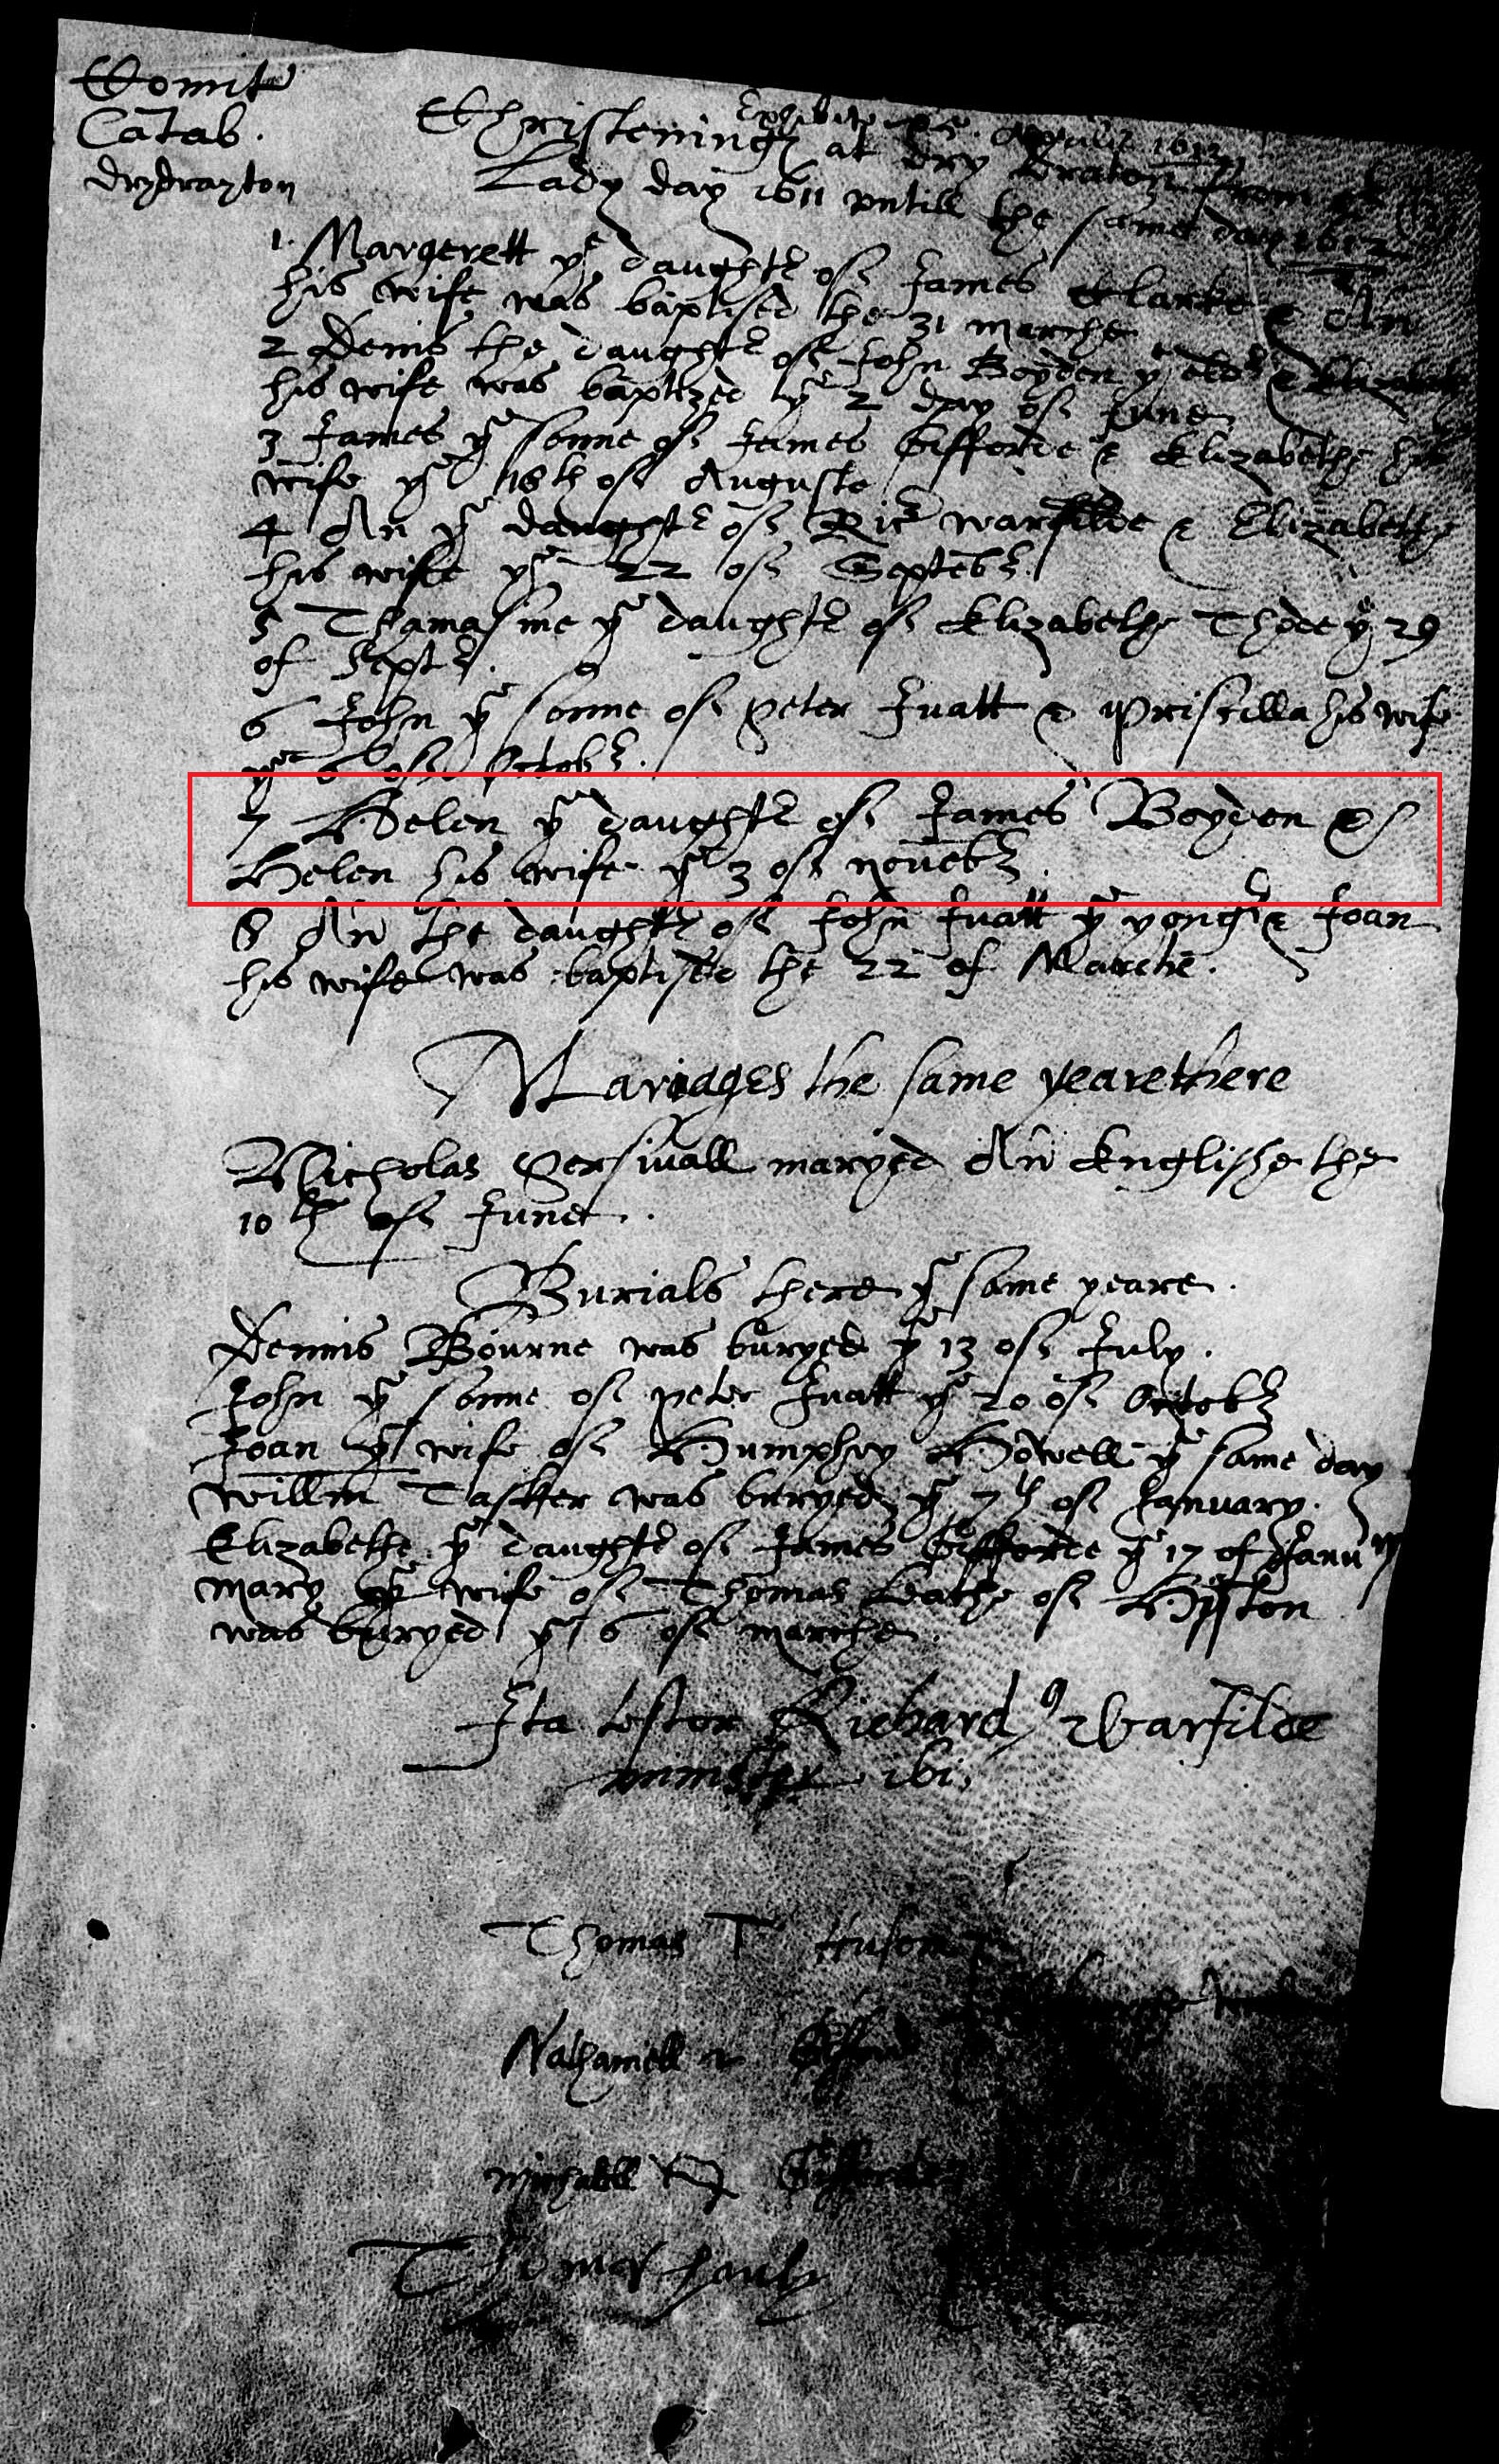 Comit
Catab.
drydrayton
Exhibit Aprilis 1612
Christenings at dry draiton from
Lady day 1611 vntill the same day 1612
1. Margerett yͤ daughtͬ of James Clarke & An
his wife was baptised the 31 marche
2 Denis the daughtͬ of John Boyden yͤ eldͬ & Elizabeth
his wife was baptized yͤ 2 day of June
3 James yͤ sonne of James Gifforde & Elizabethe his
wife yͤ 18th of Auguste
4 An yͤ daughtͬ of Ricͬ warfilde & Elizabethe
his wife yͤ 22 of Septēbͬ.
5 Thamasine yͤ daughtͬ of Elizabethe Thode yͤ 29
of Septͬ.
6 John yͤ sonne of Peter Juatt & Priscilla his wife
yͤ 6 of Octobͬ.
7 Helen yͤ daughtͬ of James Boyden &
Helen his wife yͤ 3 of novēbͬ.
8 An the daughtͬ of John Juatt yͤ yongͬ & Joan
his wife was baptised the 22 of Marche.
Mariages the same yeare there
Nicholas Persivall maryed An Englishe the
10th of June.
Burials there yͤ same yeare.
Dennis Bourne was buryed yͤ 13 of July.
John yͤ sonne of peter Juatt yͤ 20 of Octobͬ
Joan yͤ wife of Humphry Howell yͤ same day
Willm Tasker was buryed yͤ 7th of January.
Elizabethe yͤ daughtͬ of James Gifforde yͤ 17 of Januͬy
mary yͤ wife of Thomas Leathe of Hyston
was buryed yͤ 6 of marche.
Ita testor Richardꝰ Warfilde
minister ibi.
Thomas T Huson
Nathaniell Gifford
Michaell Gifforde
Thomas